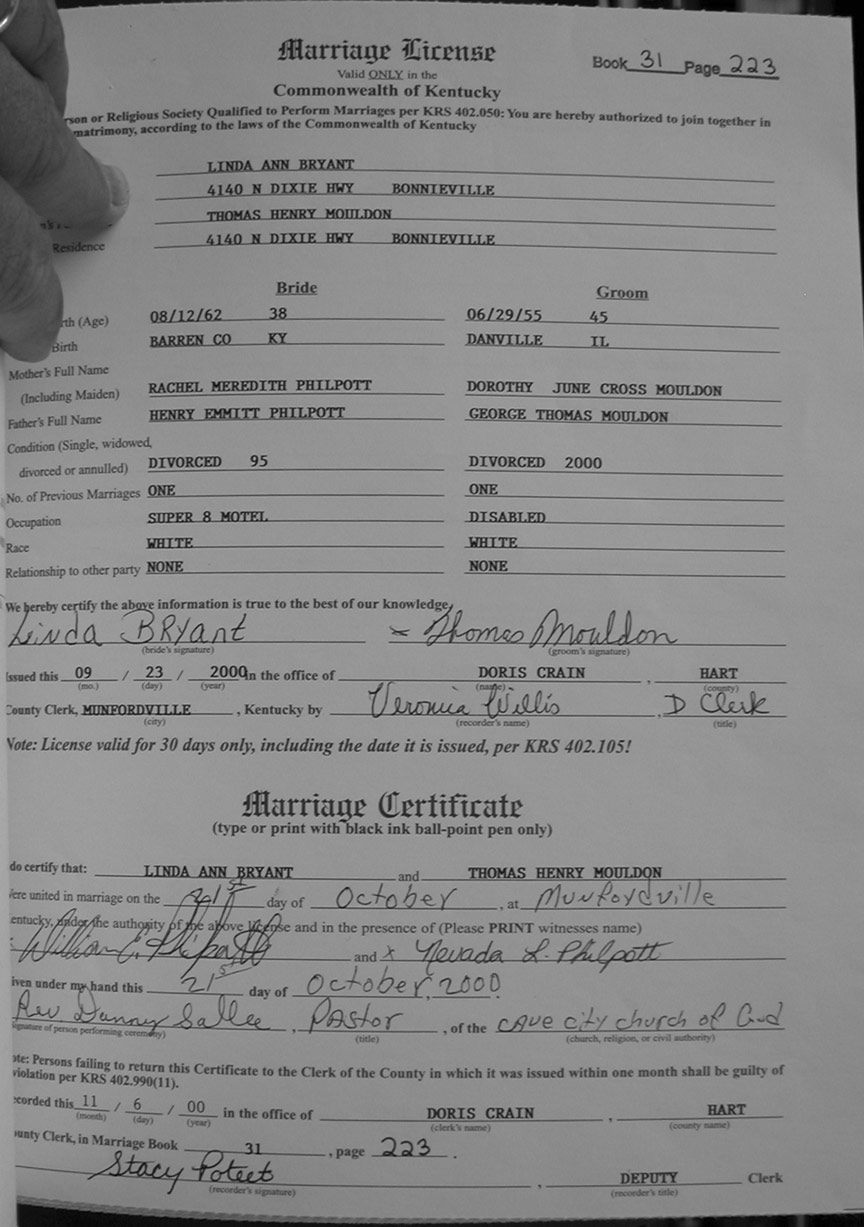 Marriage License
Book 31 Page 223
Valid ONLY in the
Commonwealth of Kentucky
rson or Religious Society Qualified to Perform Marriages per KRS 402.050: You are hereby authorized to join together in
matrimony, according to the laws of the Commonwealth of Kentucky
LINDA ANN BRYANT
4140 N DIXIE HWY BONNIEVILLE
THOMAS HENRY MOULDON
Residence 4140 N DIXIE HWY BONNIEVILLE
Bride Groom
rth (Age) 08/12/62 38 06/29/55 45
Birth BARREN CO KY DANVILLE IL
Mother's Full Name
(Including Maiden) RACHEL MEREDITH PHILPOTT DOROTHY JUNE CROSS MOULDON
Father's Full Name HENRY EMMITT PHILPOTT GEORGE THOMAS MOULDON
Condition (Single, widowed,
divorced or annulled) DIVORCED 95 DIVORCED 2000
No. of Previous Marriages ONE ONE
Occupation SUPER 8 MOTEL DISABLED
Race WHITE WHITE
Relationship to other party NONE NONE
We hereby certify the above information is true to the best of our knowledge,
Linda BRyant x Thomas Mouldon
(bride's signature) (groom's signature)
Issued this 09 / 23 / 2000 in the office of DORIS CRAIN , HART
(mo.) (day) (year) (name) (county)
County Clerk, MUNFORDVILLE , Kentucky by Veronica Willis , D Clerk
(city) (recorder's name) (title)
Note: License valid for 30 days only, including the date it is issued, per KRS 402.105!
Marriage Certificate
(type or print with black ink ball-point pen only)
do certify that: LINDA ANN BRYANT and THOMAS HENRY MOULDON
Were united in marriage on the 21st day of October , at Munfordville
entucky, under the authority of the above license and in the presence of (Please PRINT witnesses name)
William E. Philpott and x Nevada L. Philpott
iven under my hand this 21st day of October, 2000.
Rev Danny Sallee , Pastor , of the cave city church of God
signature of person performing ceremony) (title) (church, religion, or civil authority)
ote: Persons failing to return this Certificate to the Clerk of the County in which it was issued within one month shall be guilty of
violation per KRS 402.990(11).
ecorded this 11 / 6 / 00 in the office of DORIS CRAIN , HART
(month) (day) (year) (clerk's name) (county name)
ounty Clerk, in Marriage Book 31 , page 223 .
Stacy Poteet , DEPUTY Clerk
(recorder's signature) (recorder's title)